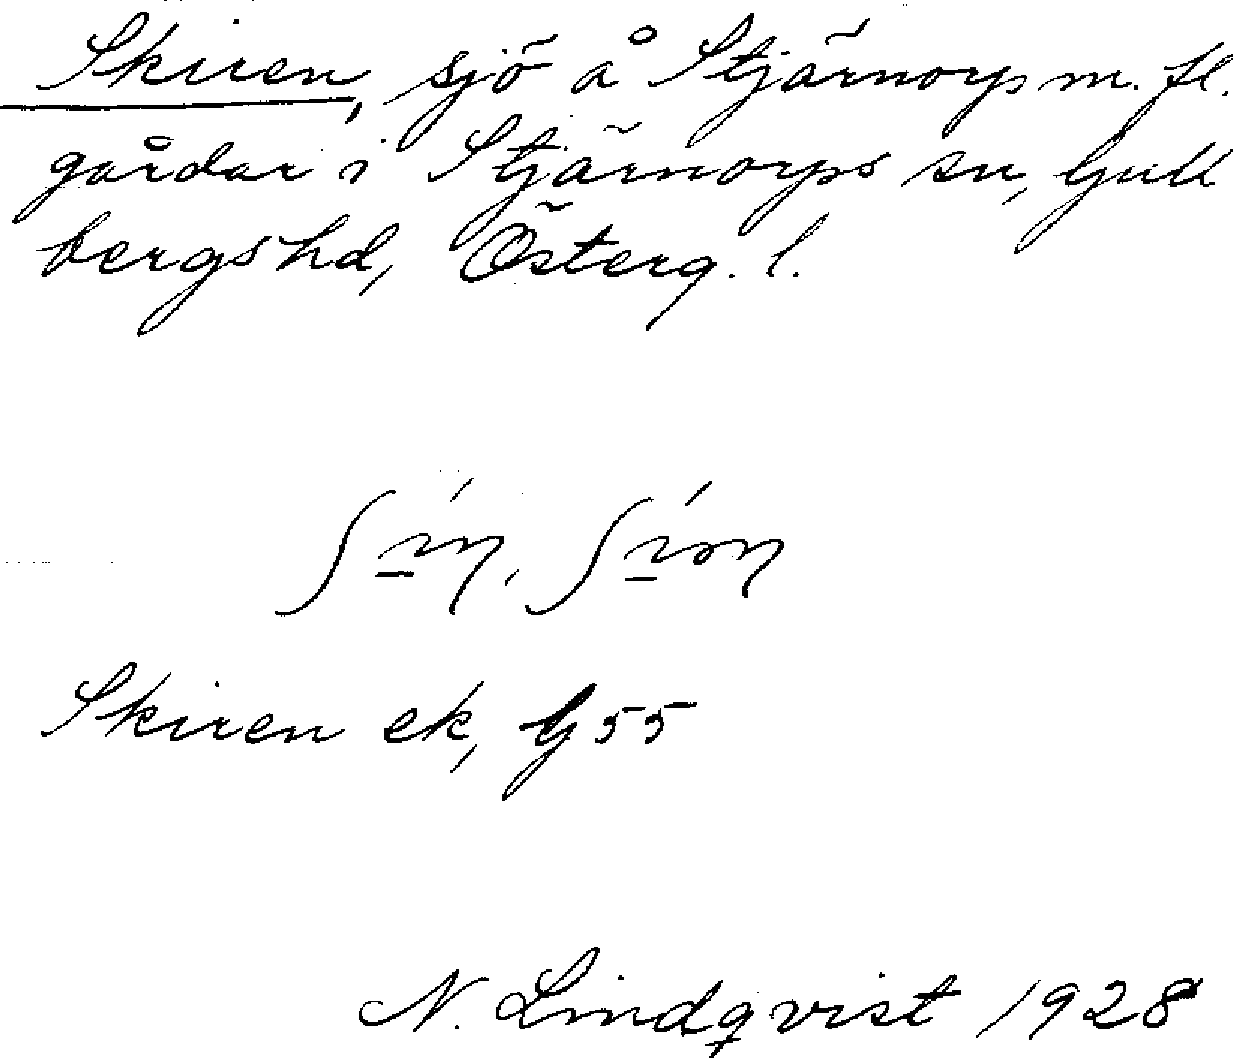 Skiren, sjö å Stjärnorps m. fl.
gårdar i Stjärnorps sn, Gull
bergs hd, Österg. l.
Skiren ek, G 55
N. Lindqvist 1928